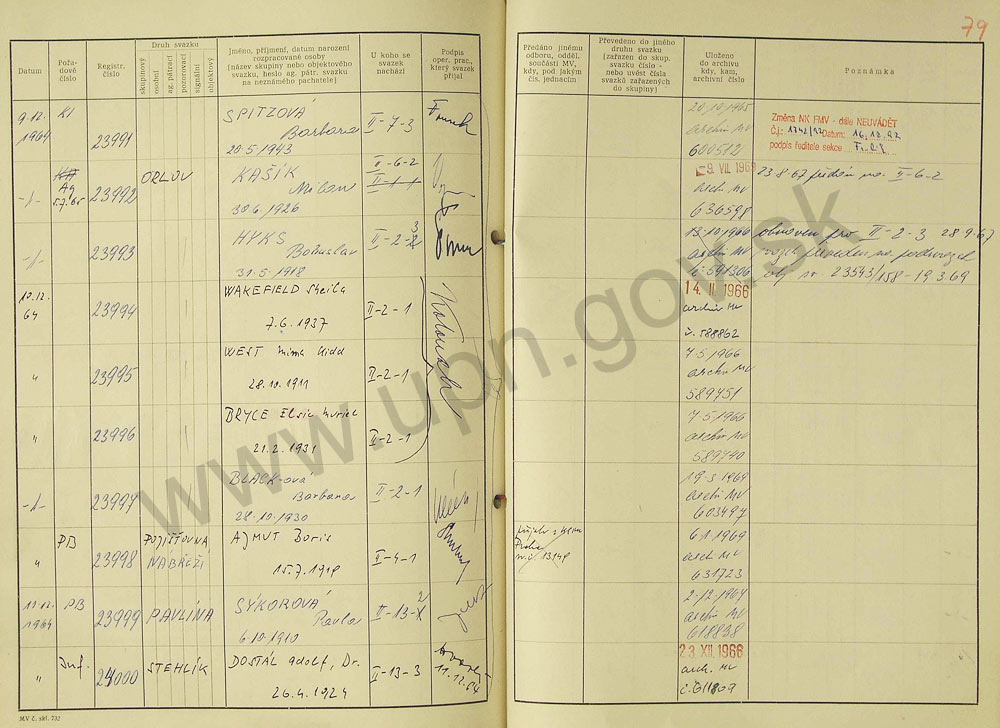 79
Datum
Pořa-
dové
číslo
Registr.
číslo
Druh svazku
skupinový
osobní
ag. pátrací
pozorovací
signální
objektový
Jméno, příjmení, datum narození
rozpracované osoby
(název skupiny nebo objektového
svazku, heslo ag. pátr. svazku
na neznámého pachatele)
U koho se
svazek
nachází
Podpis
oper. prac.,
který svazek
přijal
Předáno jinému
odboru, odděl.
součásti MV,
kdy, pod jakým
čís. jednacím
Převedeno do jiného
druhu svazku
(zařazen do skup.
svazku číslo -
nebo uvést čísla
svazků zařazených
do skupiny)
Uloženo
do archivu
kdy, kam,
archivní číslo
Poznámka
9.12.
1964
KI
23991
SPITZOVÁ
Barbara
20.5.1943
II-7-3
20.10.1965
archiv MV
600512
Změna NK FMV - dále NEUVÁDĚT
Č.j.: Datum:
podpis ředitele sekce
-//-
Ag
5.7.65
23992
ORLOV
KAŠÍK
Milan
30.6.1926
II-6-2
II-1-1
-9. VII. 1969
arch MV
636598
23.8.67 předán na II-6-2
-//-
23993
HYKS
Bohuslav
31.5.1918
II-2-3
13.10.1966
archiv MV
č. 591306
obnoven pro II-2-3 28.9.67
svazek převeden na podsvazek
obj. sv. 23543/158-19.3.69
10.12.
64
23994
WAKEFIELD Sheila
7.6.1937
II-2-1
14. II. 1966
archiv MV
č. 588862
"
23995
WEST Mima Kidd
28.10.1911
II-2-1
4.5.1966
archiv MV
589751
"
23996
BRYCE Elsie Muriel
21.2.1931
II-2-1
4.5.1966
archiv MV
589740
-//-
23997
BLACK-ová
Barbara
28.10.1930
II-2-1
19.3.1969
archiv MV
603497
"
PB
23998
POJIŠŤOVNA
NÁBŘEŽÍ
AJMUT Boris
15.7.1919
II-4-1
Praha
6.1.1969
arch MV
631723
11.12.
1964
PB
23999
PAVLÍNA
SÝKOROVÁ
Pavla
6.10.1910
II-13-2
2.12.1967
archiv MV
618838
"
Inf.
24000
STEHLÍK
DOSTÁL Adolf, Dr.
26.4.1924
II-13-3
11.12.64
23. XII. 1966
arch. MV
č. 611809
MV č. skl. 732
www.upn.gov.sk